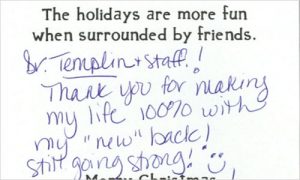 The holidays are more fun
when surrounded by friends.
Dr. Templin + staff!
Thank you for making
my life 100% with
my "new" back!
Still going strong!
Merry Christmas